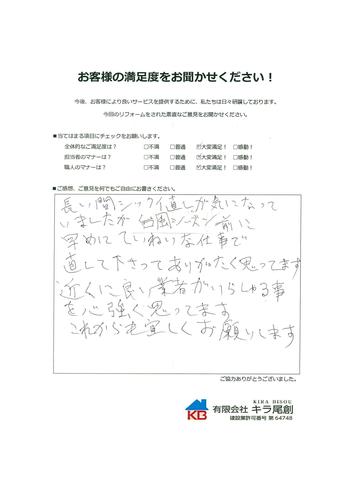 お客様の満足度をお聞かせください！
今後、お客様により良いサービスを提供するために、私たちは日々研鑽しております。
今回のリフォームをされた素直なご意見をお聞かせください。
■当てはまる項目にチェックをお願いします。
全体的なご満足度は？ □不満 □普通 ☑大変満足！ □感動！
担当者のマナーは？ □不満 □普通 ☑大変満足！ □感動！
職人のマナーは？ □不満 □普通 ☑大変満足！ □感動！
■ご感想、ご意見を何でもご自由にお書きください。
長い間シックイ直しが気になって
いましたが 台風シーズン前に
早めにていねいな仕事で
直して下さってありがたく思ってます
近くに良い業者がいらしゃる事
を心強く思ってます
これからも宜しくお願いします
ご協力ありがとうございました。
KIRA BISOU
KB 有限会社 キラ尾創
建設業許可番号 第 64748